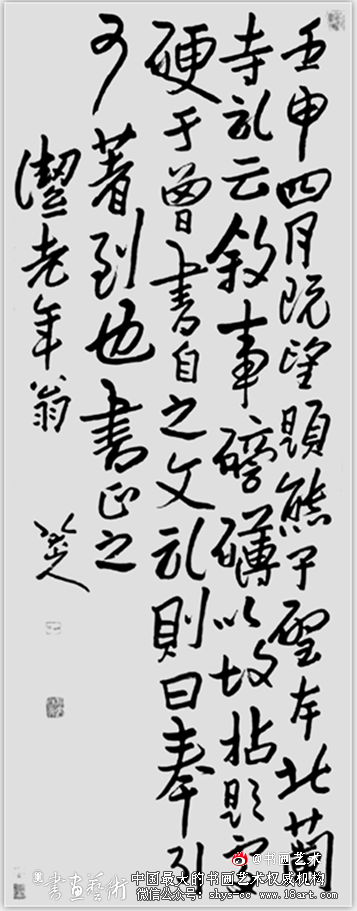 壬申四月既望題熊子聖本北蘭
寺記云敘事磅礴以故拈題宜
硬于曾書自之文記則曰奉引
可著到也書正之
潔老年翁
八大山人
@书画艺术
書畫藝術
中国最大的书画艺术权威机构
微信公众号: shys-cc www.18art.com